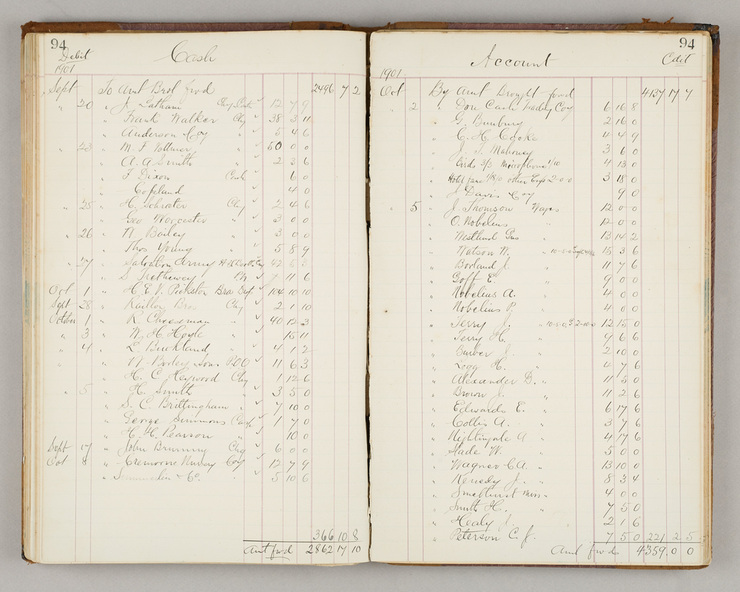 94
Cash
Debit
1901
Sept To Amt Brot Fwd 2496 7 2
" 20 " J. Latham 12 7 9
" Frank Walker Chq 38 3 11
" Anderson & Coy 5 4 6
" 23 " M. F. Vollmer 50 0 0
" A. A. Smith 2 3 6
" F Dixon Cash 6 0
" Copeland 4 0
" 25 " H. Schroter Chq 2 4 6
" Geo Worcester " 3 0 0
" 26 " N. Bailey " 3 0 0
" Thos Young " 5 8 9
" 27 " Salvation Army
" S. Trethewey 7 11 6
Oct 1 " 104 10 10
Sept 28 " Bros Chq 2 1 10
October 1 " R. Cheesman " 40 12 3
" 3 " W. H. Hoyle " 15 11
" 4 " L. Buckland " 4 1 2
" & Son P.O.O 11 6 3
" H. C. Heywood Chq 1 12 6
" 5 " H. Smith " 3 5 0
" S. C. Brittingham " 7 10 0
" George Simmons 1 7 0
" H. H. Pearson " 10 0
Sept 17 " John Brunning Chq 6 0 0
Oct 8 " Cremorne Nursery Coy 12 7 9
" & Co. 5 10 6
366 10 8
Amt fwd 2862 17 10
94
Account
Cedit
1901
Oct By Amt Brought fowd 4137 17 7
" 2 " Don Cash Trading Coy 6 10 8
" G. Bunbury 2 10 0
" C. H. Cooke 4 4 9
" J. J. Mahoney 3 6 0
" 4 13 0
" 3 18 0
" J Davis Coy 9 0
" 5 " J. Thomson Wages 12 0 0
" O. Nobelius " 12 0 0
" 13 14 2
" Watson W. " 15 3 6
" Borland J. " 11 7 6
" Goff E. " 9 0 0
" Nobelius A. " 4 0 0
" Nobelius P. " 4 0 0
" Terry J. " 12 15 0
" Terry H. " 9 6 6
" J. " 2 10 0
" Logg H. " 4 7 6
" Alexander D. " 11 5 0
" Brown J. " 11 2 6
" Edwards E. " 6 17 6
" Collis A. " 3 7 6
" Nightingale A " 4 17 6
" W. " 5 0 0
" Wagner C.A. " 13 10 0
" J. " 8 3 4
" Smethurst Miss " 4 0 0
" Smith H. " 7 5 0
" Healy J. " 2 1 6
" Peterson C. J. 7 5 0 221 2 5
Amt fwd 4359 0 0